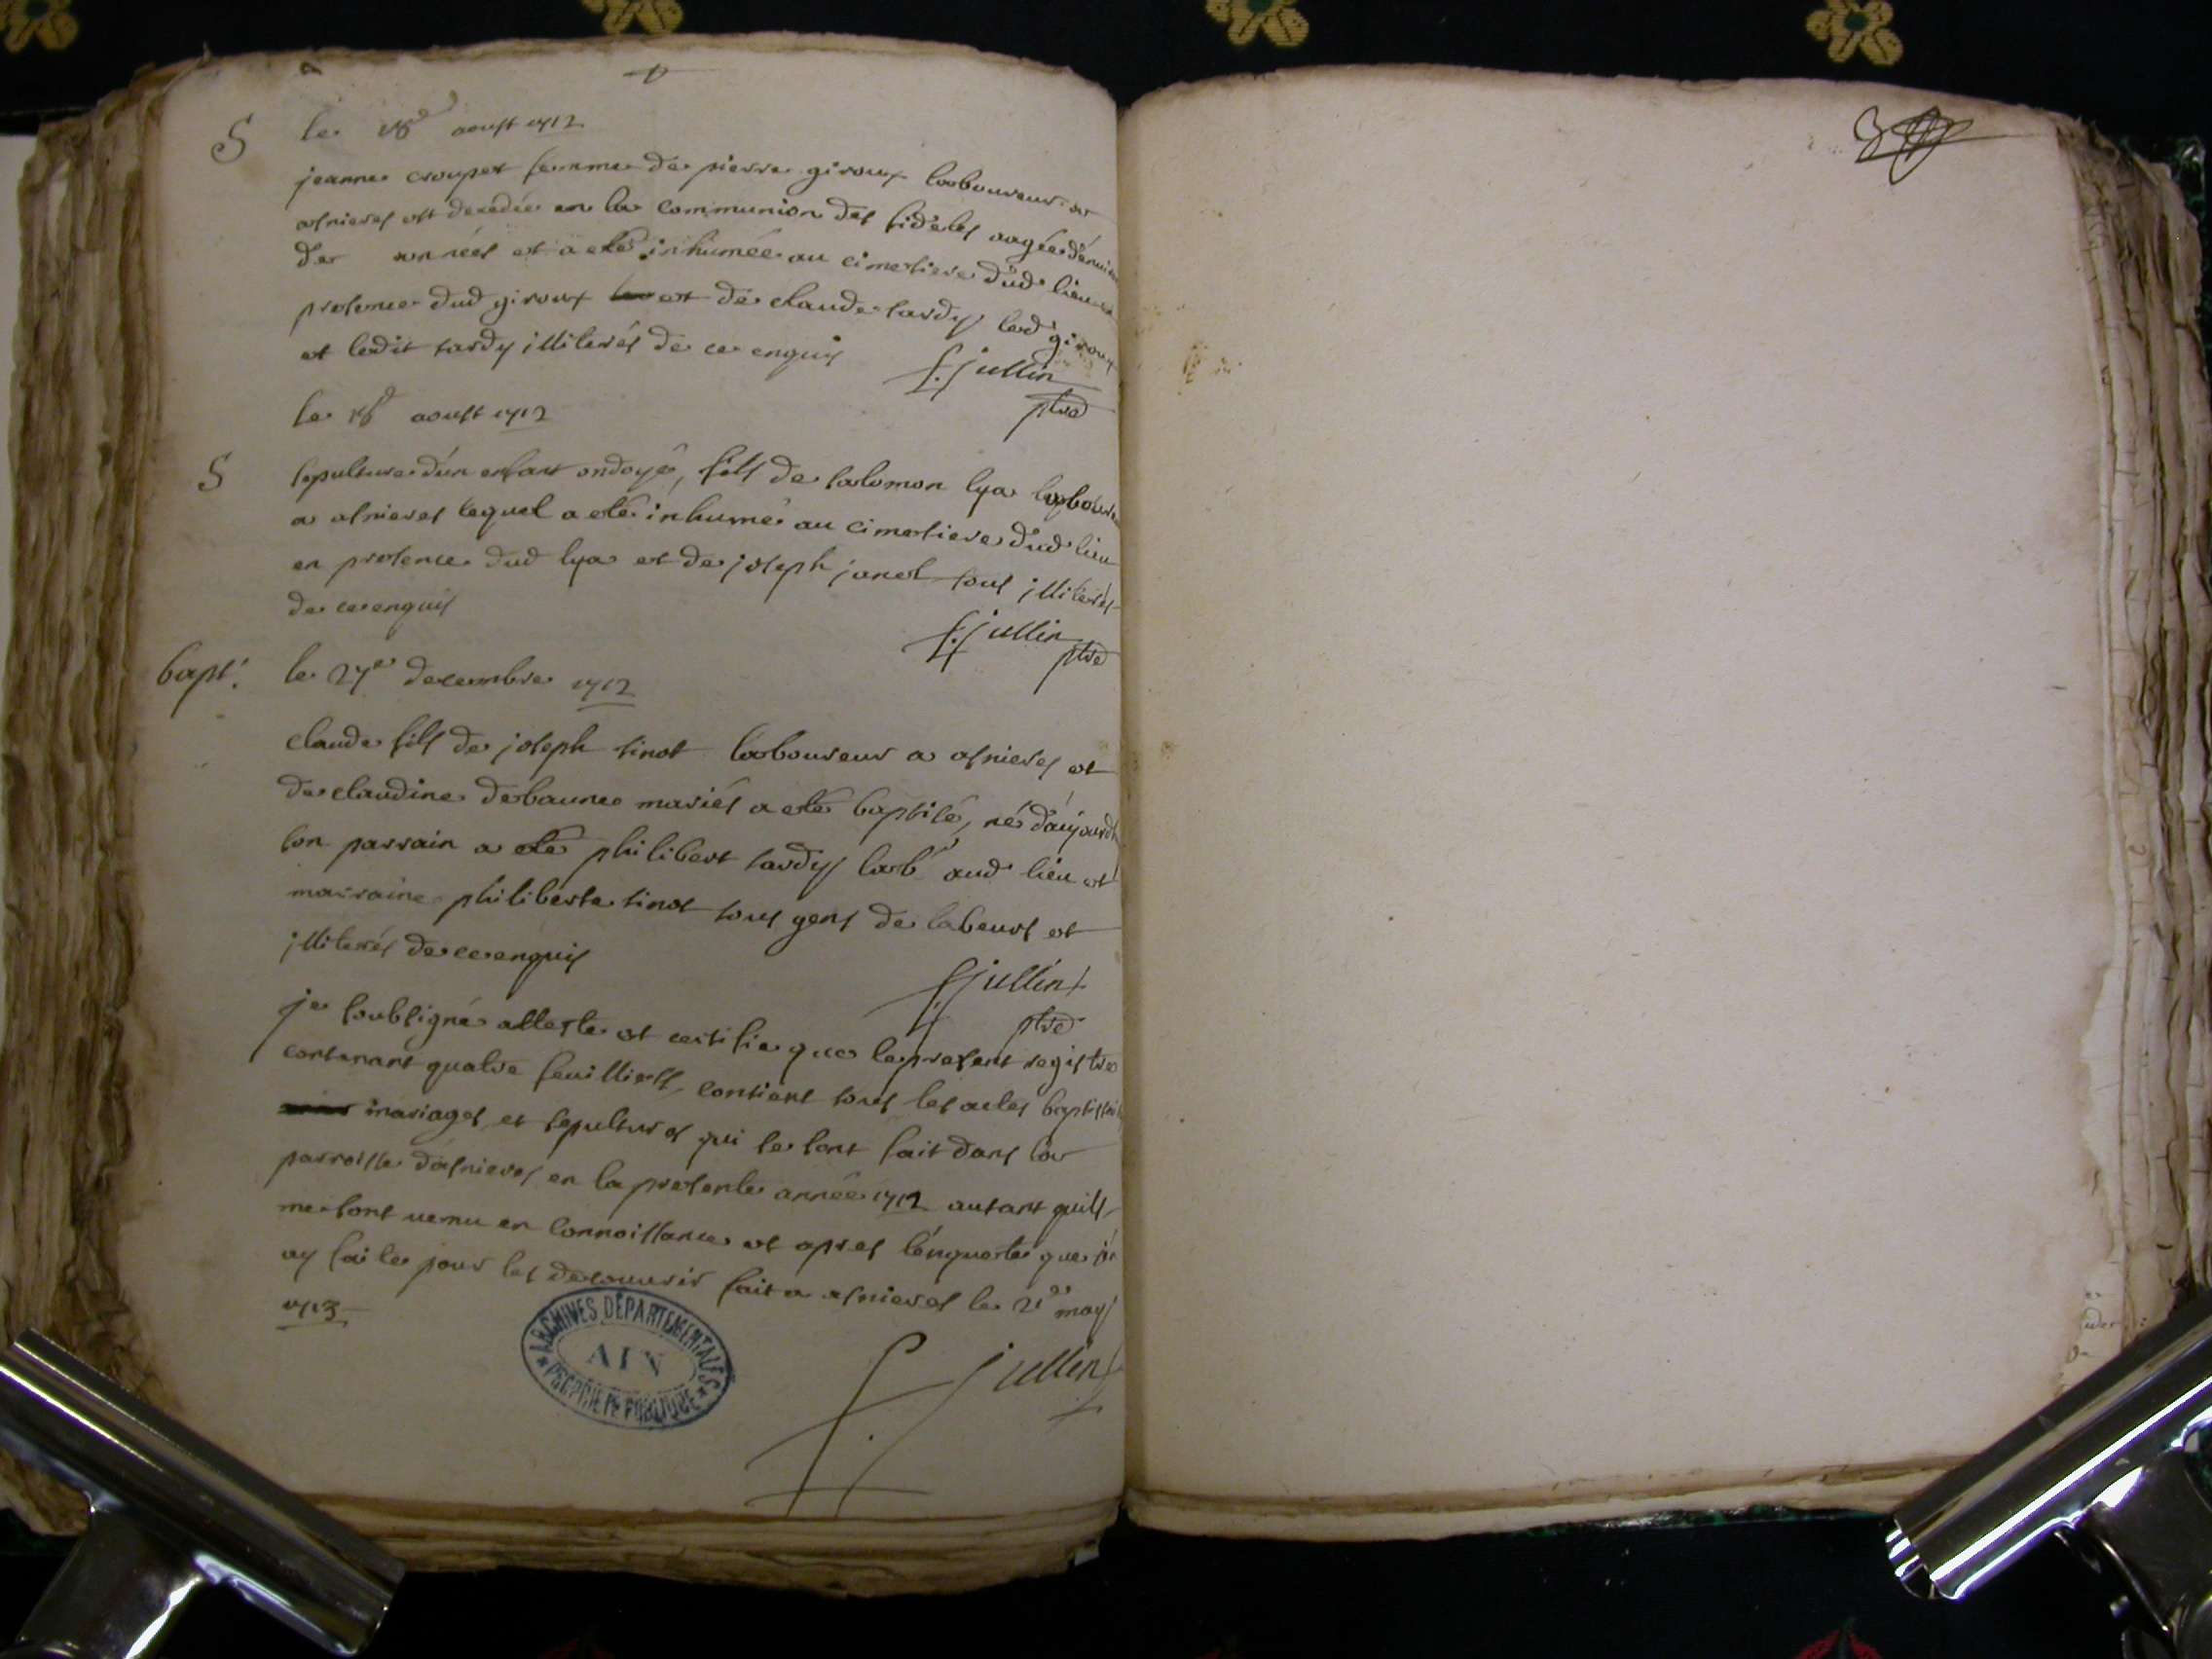 S le 18e aoust 1712
jeanne croupet femme de pierre giroux laboureur a
asnieres est decedée en la communion des fideles aagée d'environ
de années et a eté inhumée au cimetiere dud lieu en
presence dud giroux et de claude tardy led giroux
et ledit tardy illiterés de ce enquis
f. jullin
ptre
le 18e aoust 1712
S sepulture d'un enfant ondoyé, fils de salomon lya laboureur
a asnieres lequel a eté inhumé au cimetiere dud lieu
en presence dud lya et de joseph janet tous illiterés
de ce enquis
f. jullin
ptre
bapt. le 27e decembre 1712
claude fils de joseph tinot laboureur a asnieres et
de claudine debaune mariés a eté baptisé, né d'aujourdh
son parrain a eté philibert tardy lab aud lieu et
marraine philiberte tinot tous gens de labeurs et
illiterés de ce enquis
f. jullin
ptre
je soubsigné atteste et certifie que le present registre
contenant quatre feuilliets contient tous les actes baptist
mariages et sepultures qui se sont fait dans la
parroisse d'asnieres en la presente année 1712 autant quils
me sont venu en connoissance et apres l'enqueste que j'en
ay faite pour les decouvrir fait a asnieres le 21e may
1713
f. jullin
ARCHIVES DÉPARTEMENTALES
AIN
PROPRIÉTÉ PUBLIQUE